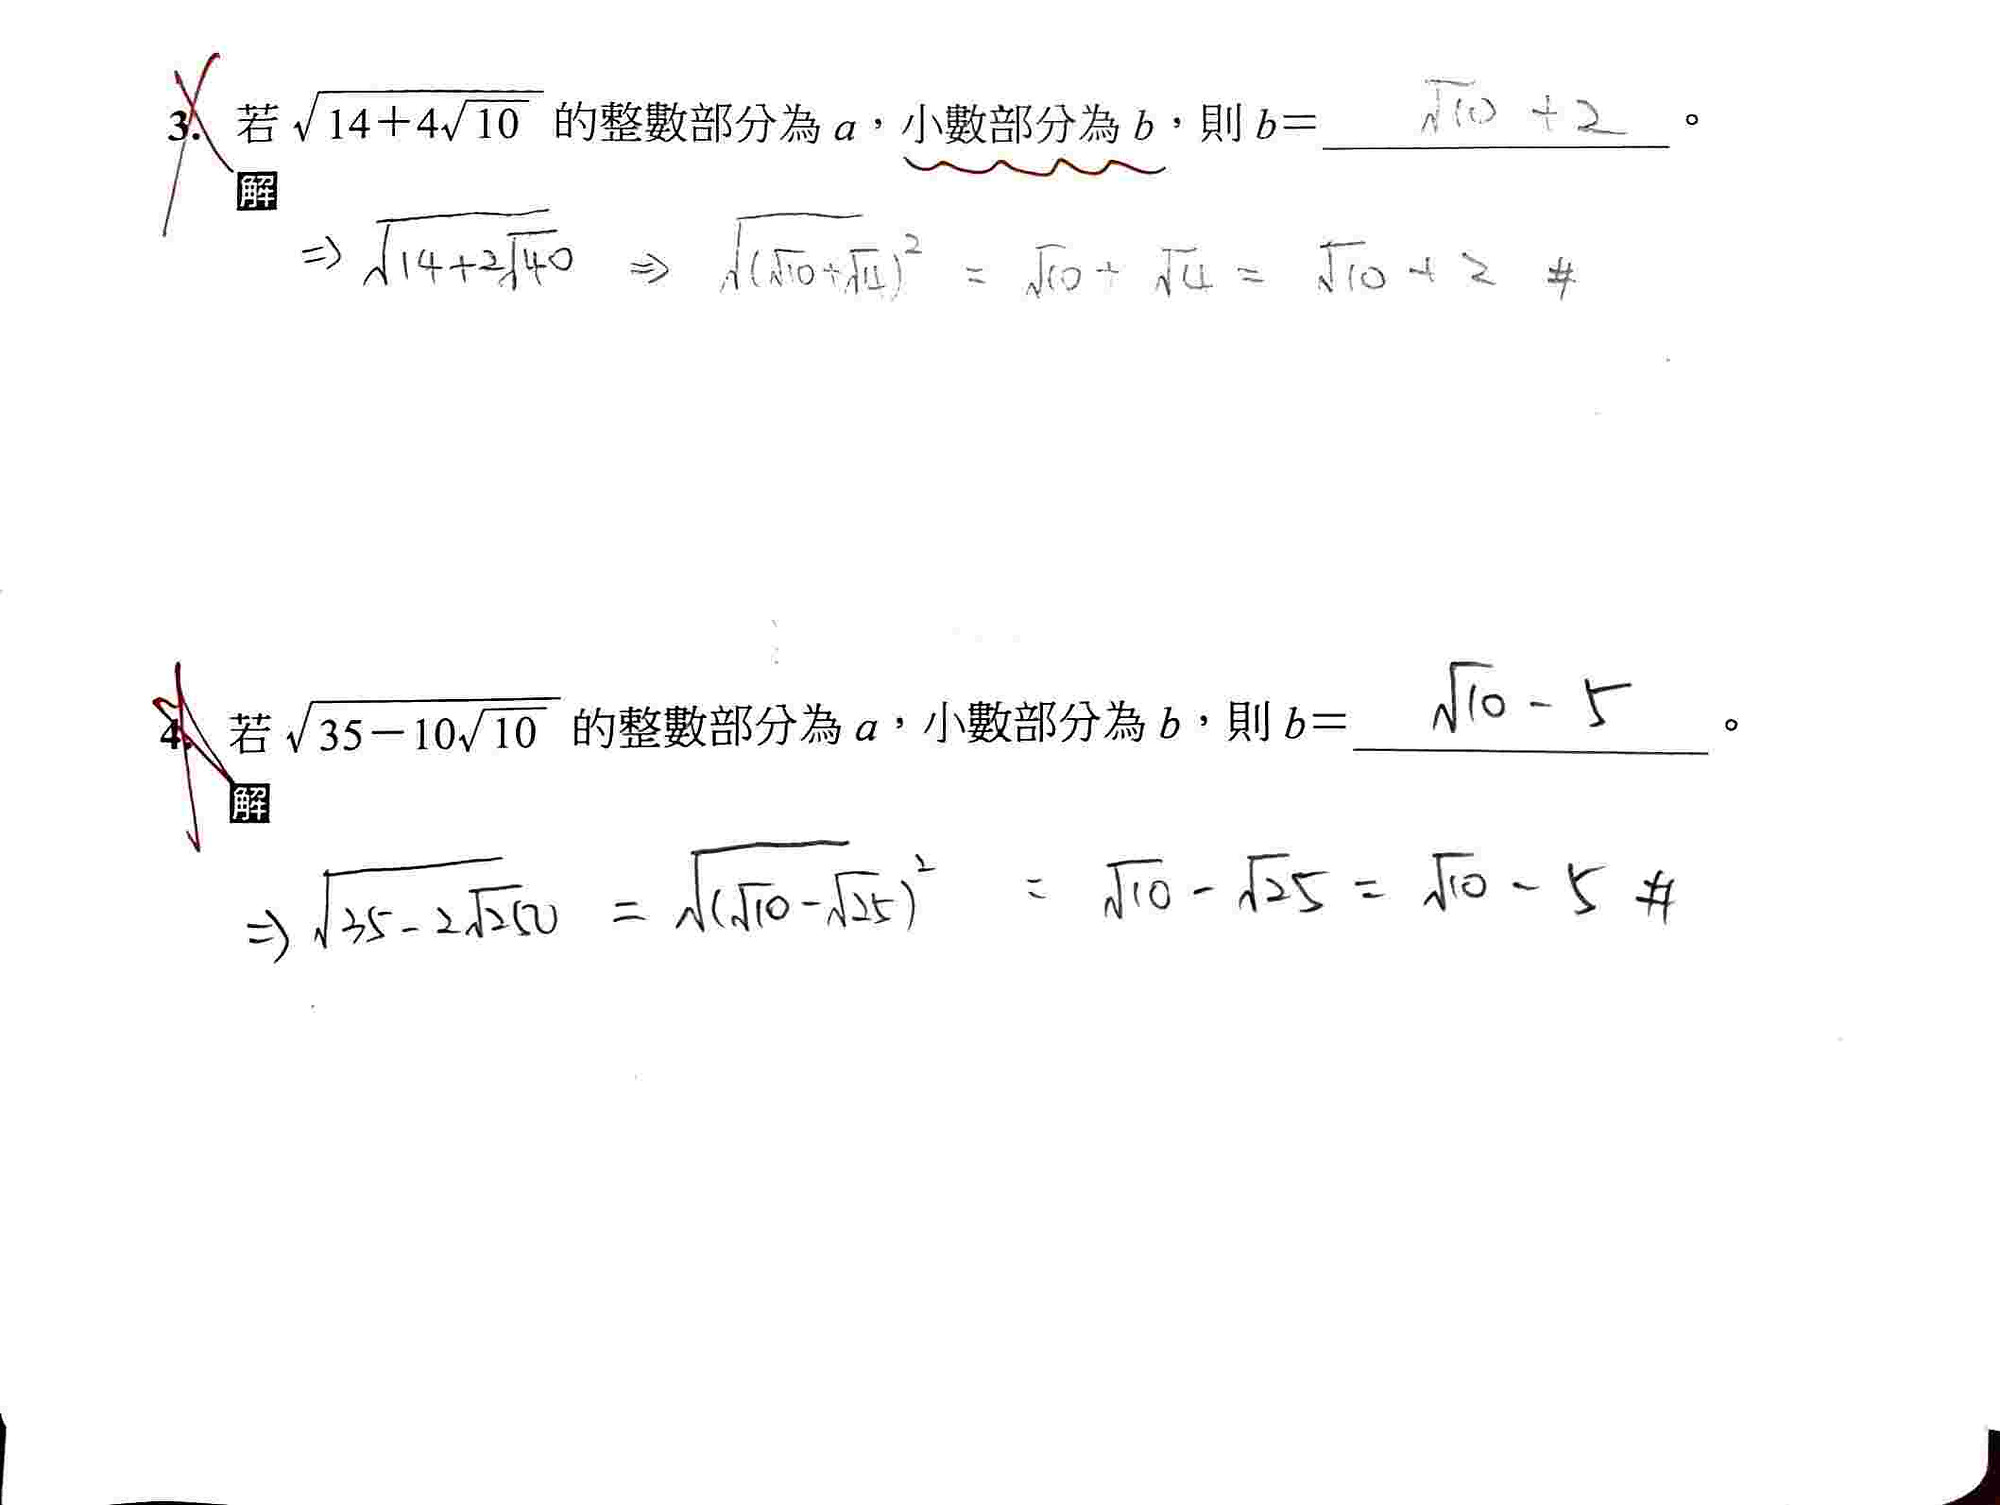 3. 若 √(14+4√10) 的整數部分為 a，小數部分為 b，則 b= √10 +2 。
解
⇒ √(14+2√40) ⇒ √((√10+√4)²) = √10 + √4 = √10 + 2 #
4. 若 √(35−10√10) 的整數部分為 a，小數部分為 b，則 b= √10 - 5 。
解
⇒ √(35-2√250) = √((√10-√25)²) = √10 - √25 = √10 - 5 #